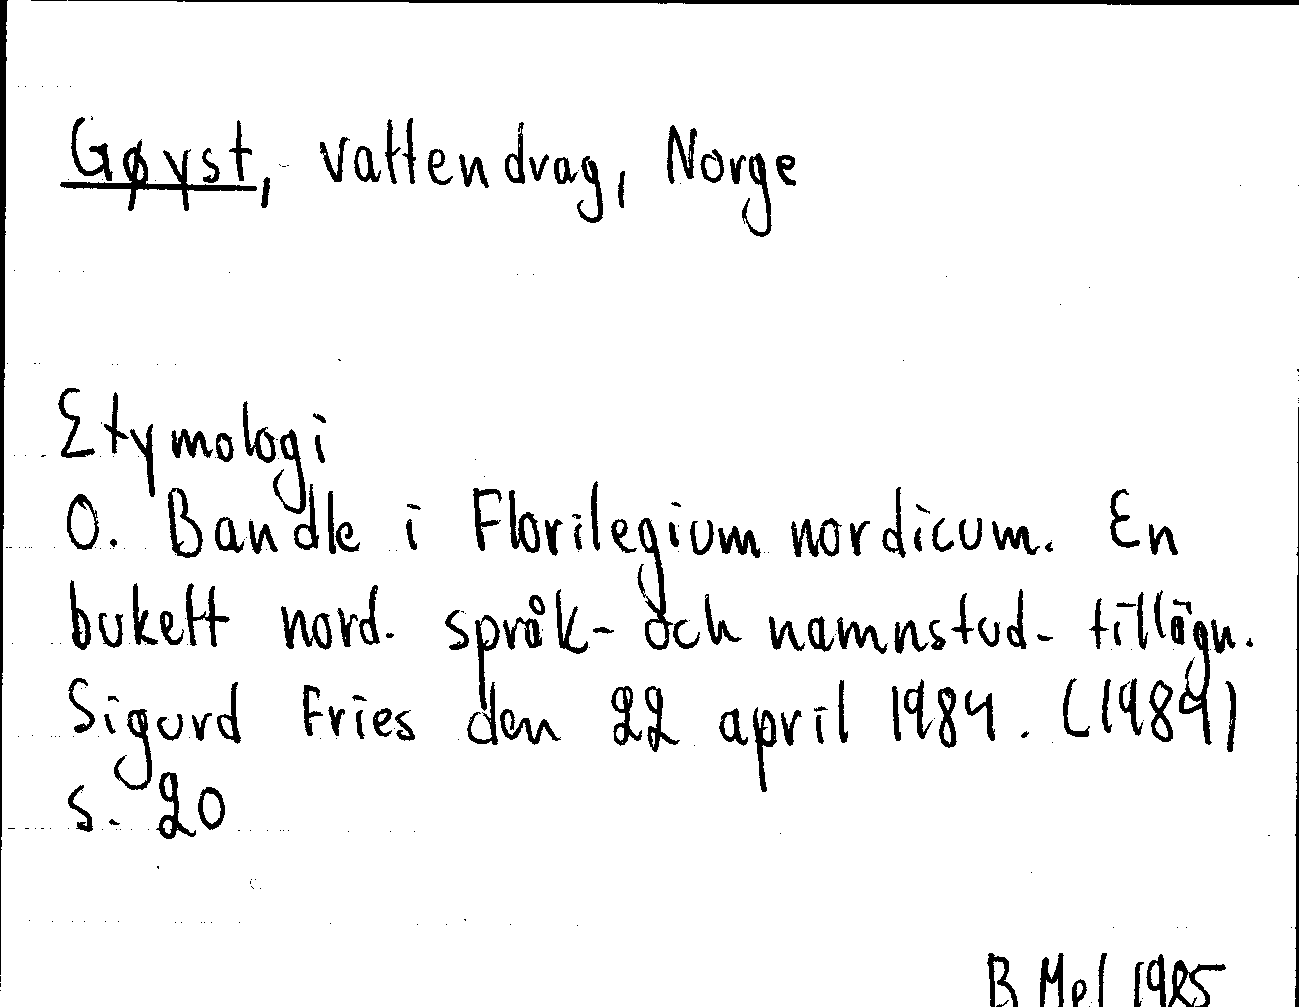 Gøyst, vattendrag, Norge
Etymologi
O. Bandle i Florilegium nordicum. En
bukett nord. språk- och namnstud. tillägn.
Sigurd Fries den 22 april 1984. (1984)
s. 20
B Mel 1985